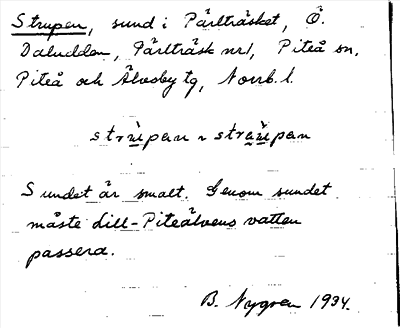 Strupen, sund i Pärlträsket, Ö.
Daludden, Pärlträsk nr1, Piteå sn,
Piteå och Älvsby tg, Norrb. l.
strùpan ~ straùpan
Sundet är smalt. Genom sundet
måste Lill-Piteälvens vatten
passera.
B. Nygren 1934.